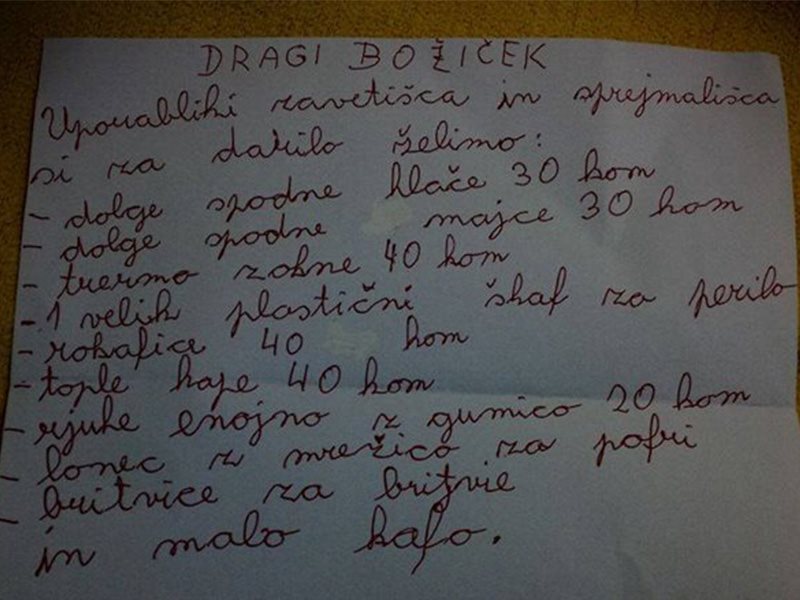 DRAGI BOŽIČEK
Uporabliki zavetišča in sprejmališča
si za darilo želimo:
- dolge spodne hlače 30 kom
- dolge spodne majce 30 kom
- trermo zokne 40 kom
- 1 velik plastični škaf za perilo
- rokafice 40 kom
- tople kape 40 kom
- rjuhe enojno z gumico 20 kom
- lonec z mrežico za pofri
- britvice za britvie
in malo kafo.